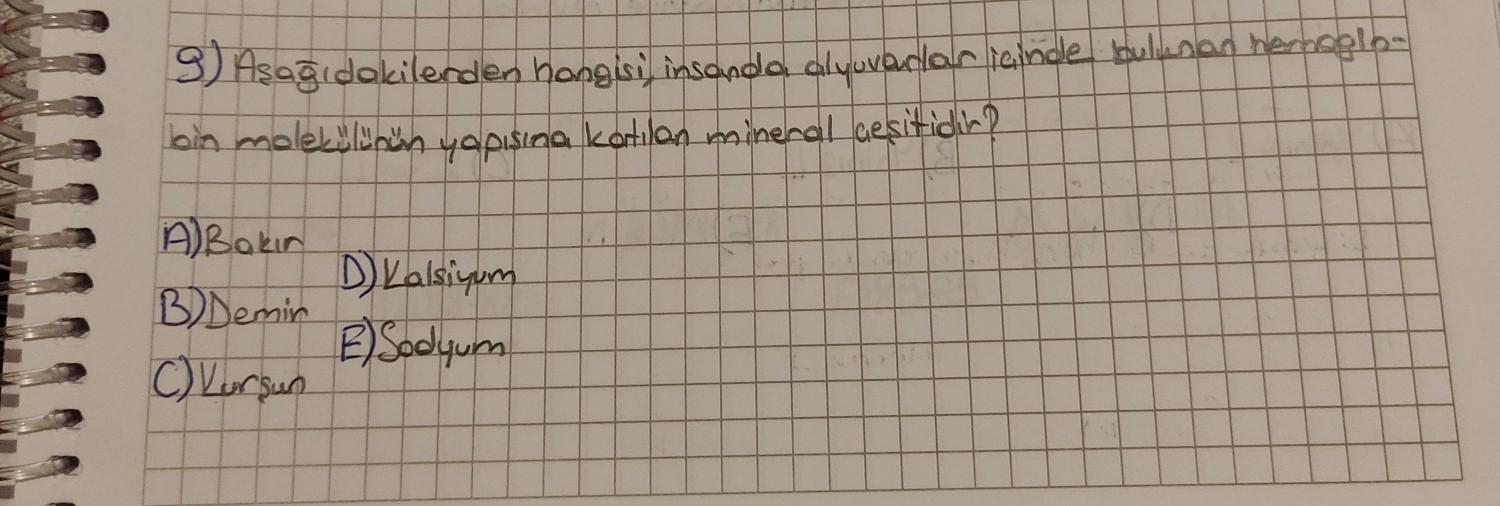 9) Aşağıdakilerden hangisi, insanda alyuvarlar içinde bulunan hemoglo-
bin molekülünün yapısına katılan mineral çeşitidir?
A) Bakır
D) Kalsiyum
B) Demir
E) Sodyum
C) Kurşun